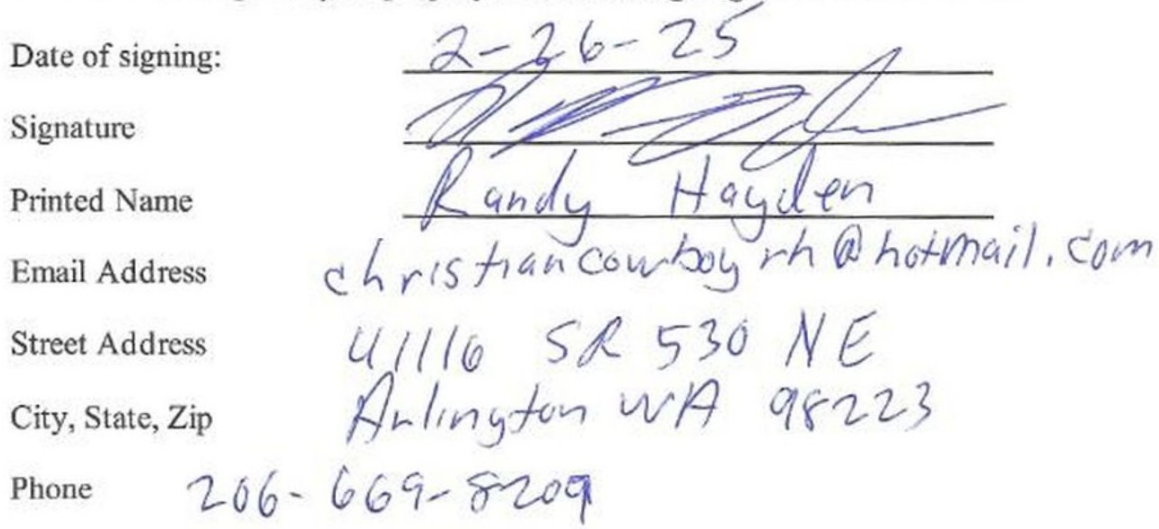 Date of signing: 2-26-25
Signature
Printed Name Randy Hayden
Email Address christiancowboyrh@hotmail.com
Street Address 41116 SR 530 NE
City, State, Zip Arlington WA 98223
Phone 206-669-8209